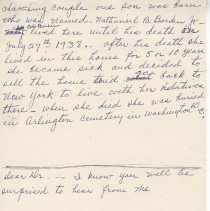 charming couple one son was born
who was named Nathaniel B. Boden Jr.
lived here until his death on
July 27th 1938.. after his death she
lived in this home for 5 or 10 years
she became sick and decided to
sell the home and back to
New York to live with her relatives
there - when she died she was buried
in Arlington cemetery in Washington D.C.
Dear Mr. -- I know you will be
surprised to hear from me